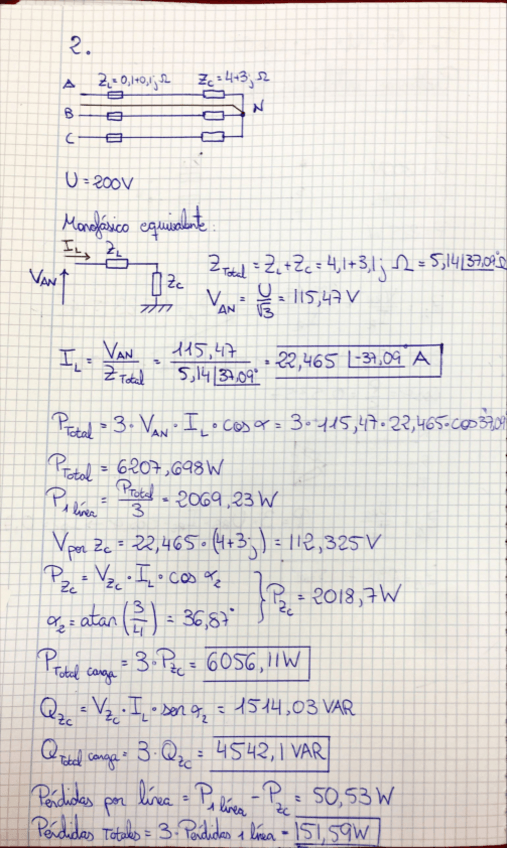 2.
A Z_L = 0,1+0,1j Ω Z_C = 4+3j Ω
B N
C
U = 200V
Monofásico equivalente:
I_L Z_L
V_AN Z_C
Z_Total = Z_L + Z_C = 4,1+3,1j Ω = 5,14∠37,09° Ω
V_AN = U/√3 = 115,47 V
I_L = V_AN/Z_Total = 115,47/5,14∠37,09° = 22,465 ∠-37,09° A
P_Total = 3·V_AN·I_L·cos α = 3·115,47·22,465·cos 37,09°
P_Total = 6207,698W
P_1 línea = P_Total/3 = 2069,23 W
V por Z_C = 22,465·(4+3j) = 112,325 V
P_Zc = V_Zc·I_L·cos α_2
α_2 = atan(3/4) = 36,87° } P_Zc = 2018,7W
P_Total carga = 3·P_Zc = 6056,11W
Q_Zc = V_Zc·I_L·sen α_2 = 1514,03 VAR
Q_Total carga = 3·Q_Zc = 4542,1 VAR
Pérdidas por línea = P_1 línea - P_Zc = 50,53 W
Pérdidas Totales = 3·Pérdidas 1 línea = 151,59W